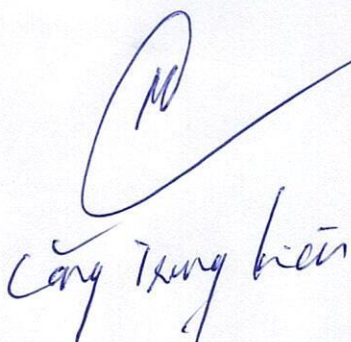 Công Trung kiên